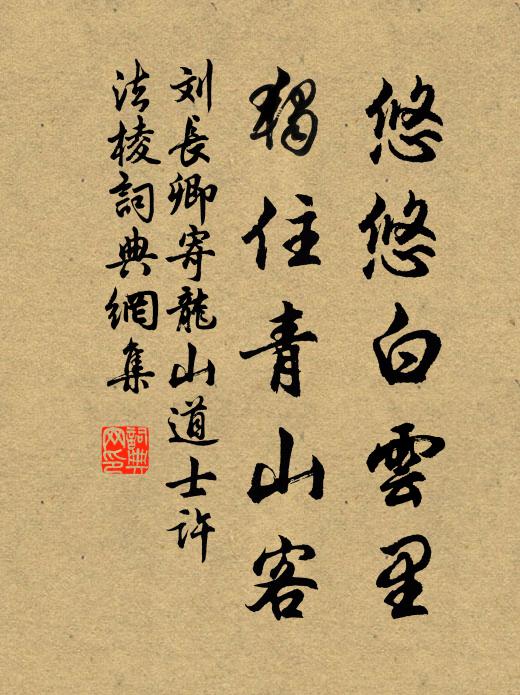 悠悠白雲里
獨住青山客
刘長卿寄龍山道士許
法棱詞典網集
詞典網印